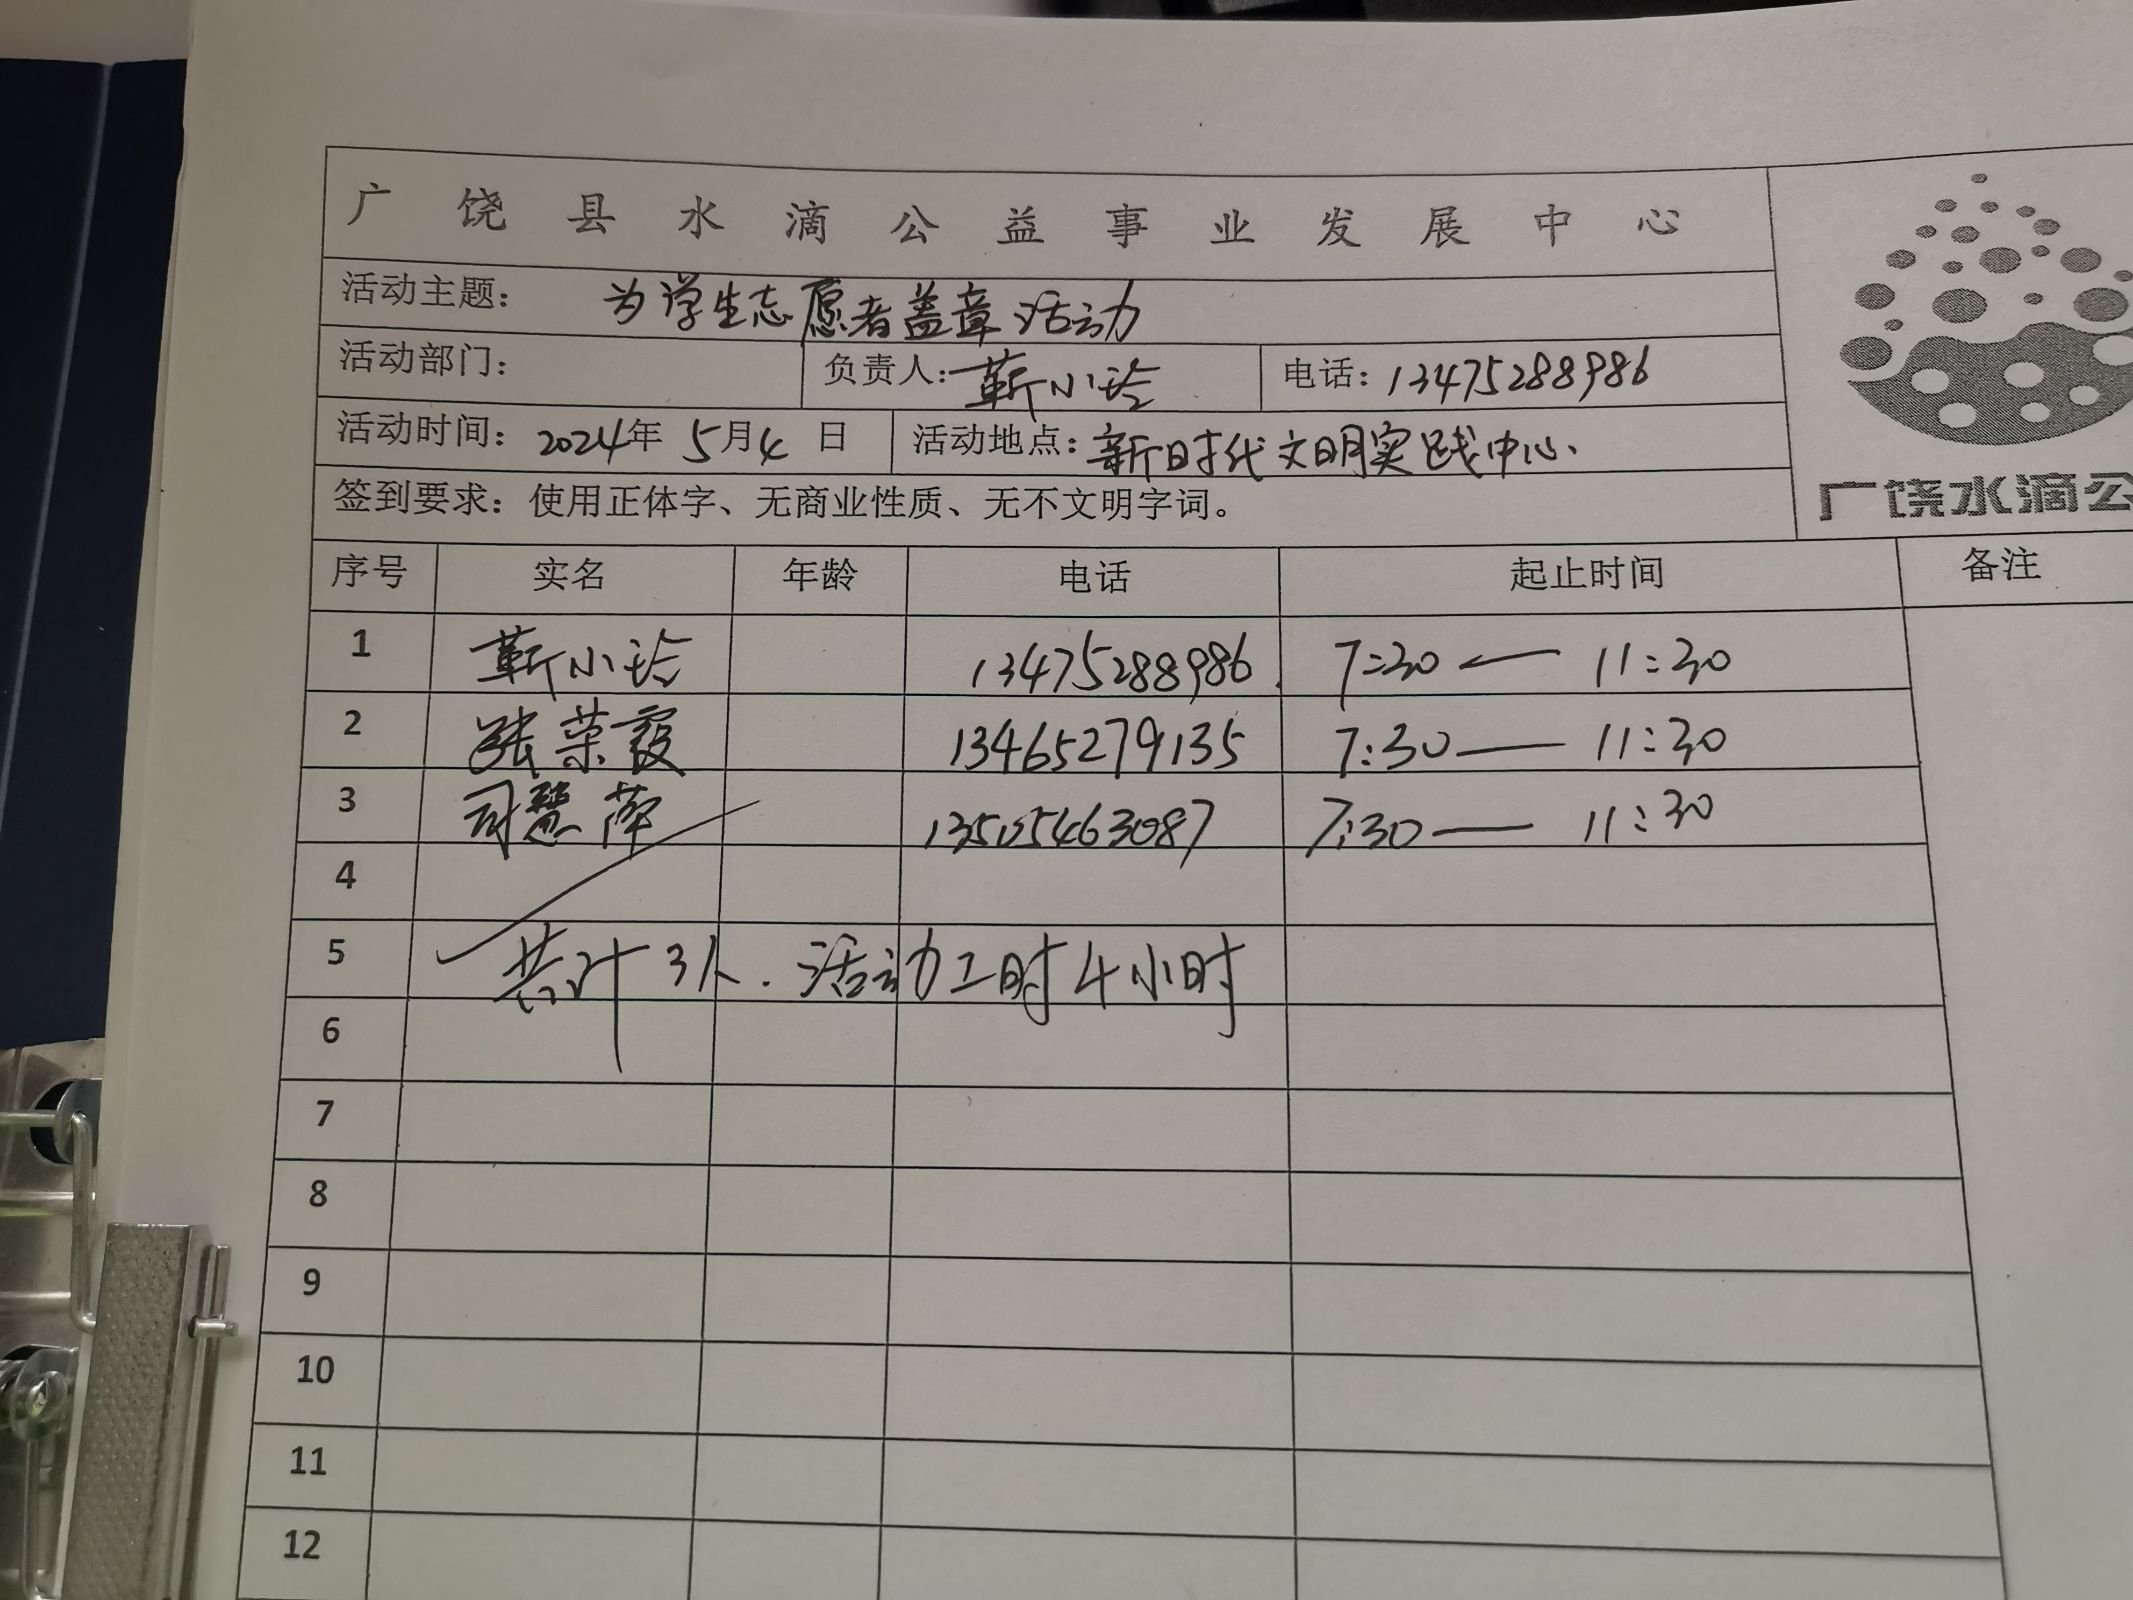 广饶县水滴公益事业发展中心
活动主题： 为学生志愿者盖章活动
活动部门： 负责人：靳小玲 电话：13475288986
活动时间：2024年 5月4日 活动地点：新时代文明实践中心
签到要求：使用正体字、无商业性质、无不文明字词。
广饶水滴公
序号 实名 年龄 电话 起止时间 备注
1 靳小玲 13475288986 7:30 — 11:30
2 张荣霞 13465279135 7:30 — 11:30
3 司慧萍 13505463087 7:30 — 11:30
4
5 共计3人.活动工时4小时
6
7
8
9
10
11
12